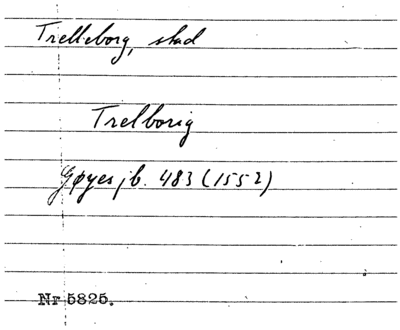 Trelleborg, stad
Trelborig
Gøyes jb. 483 (1552)
Nr 5825.